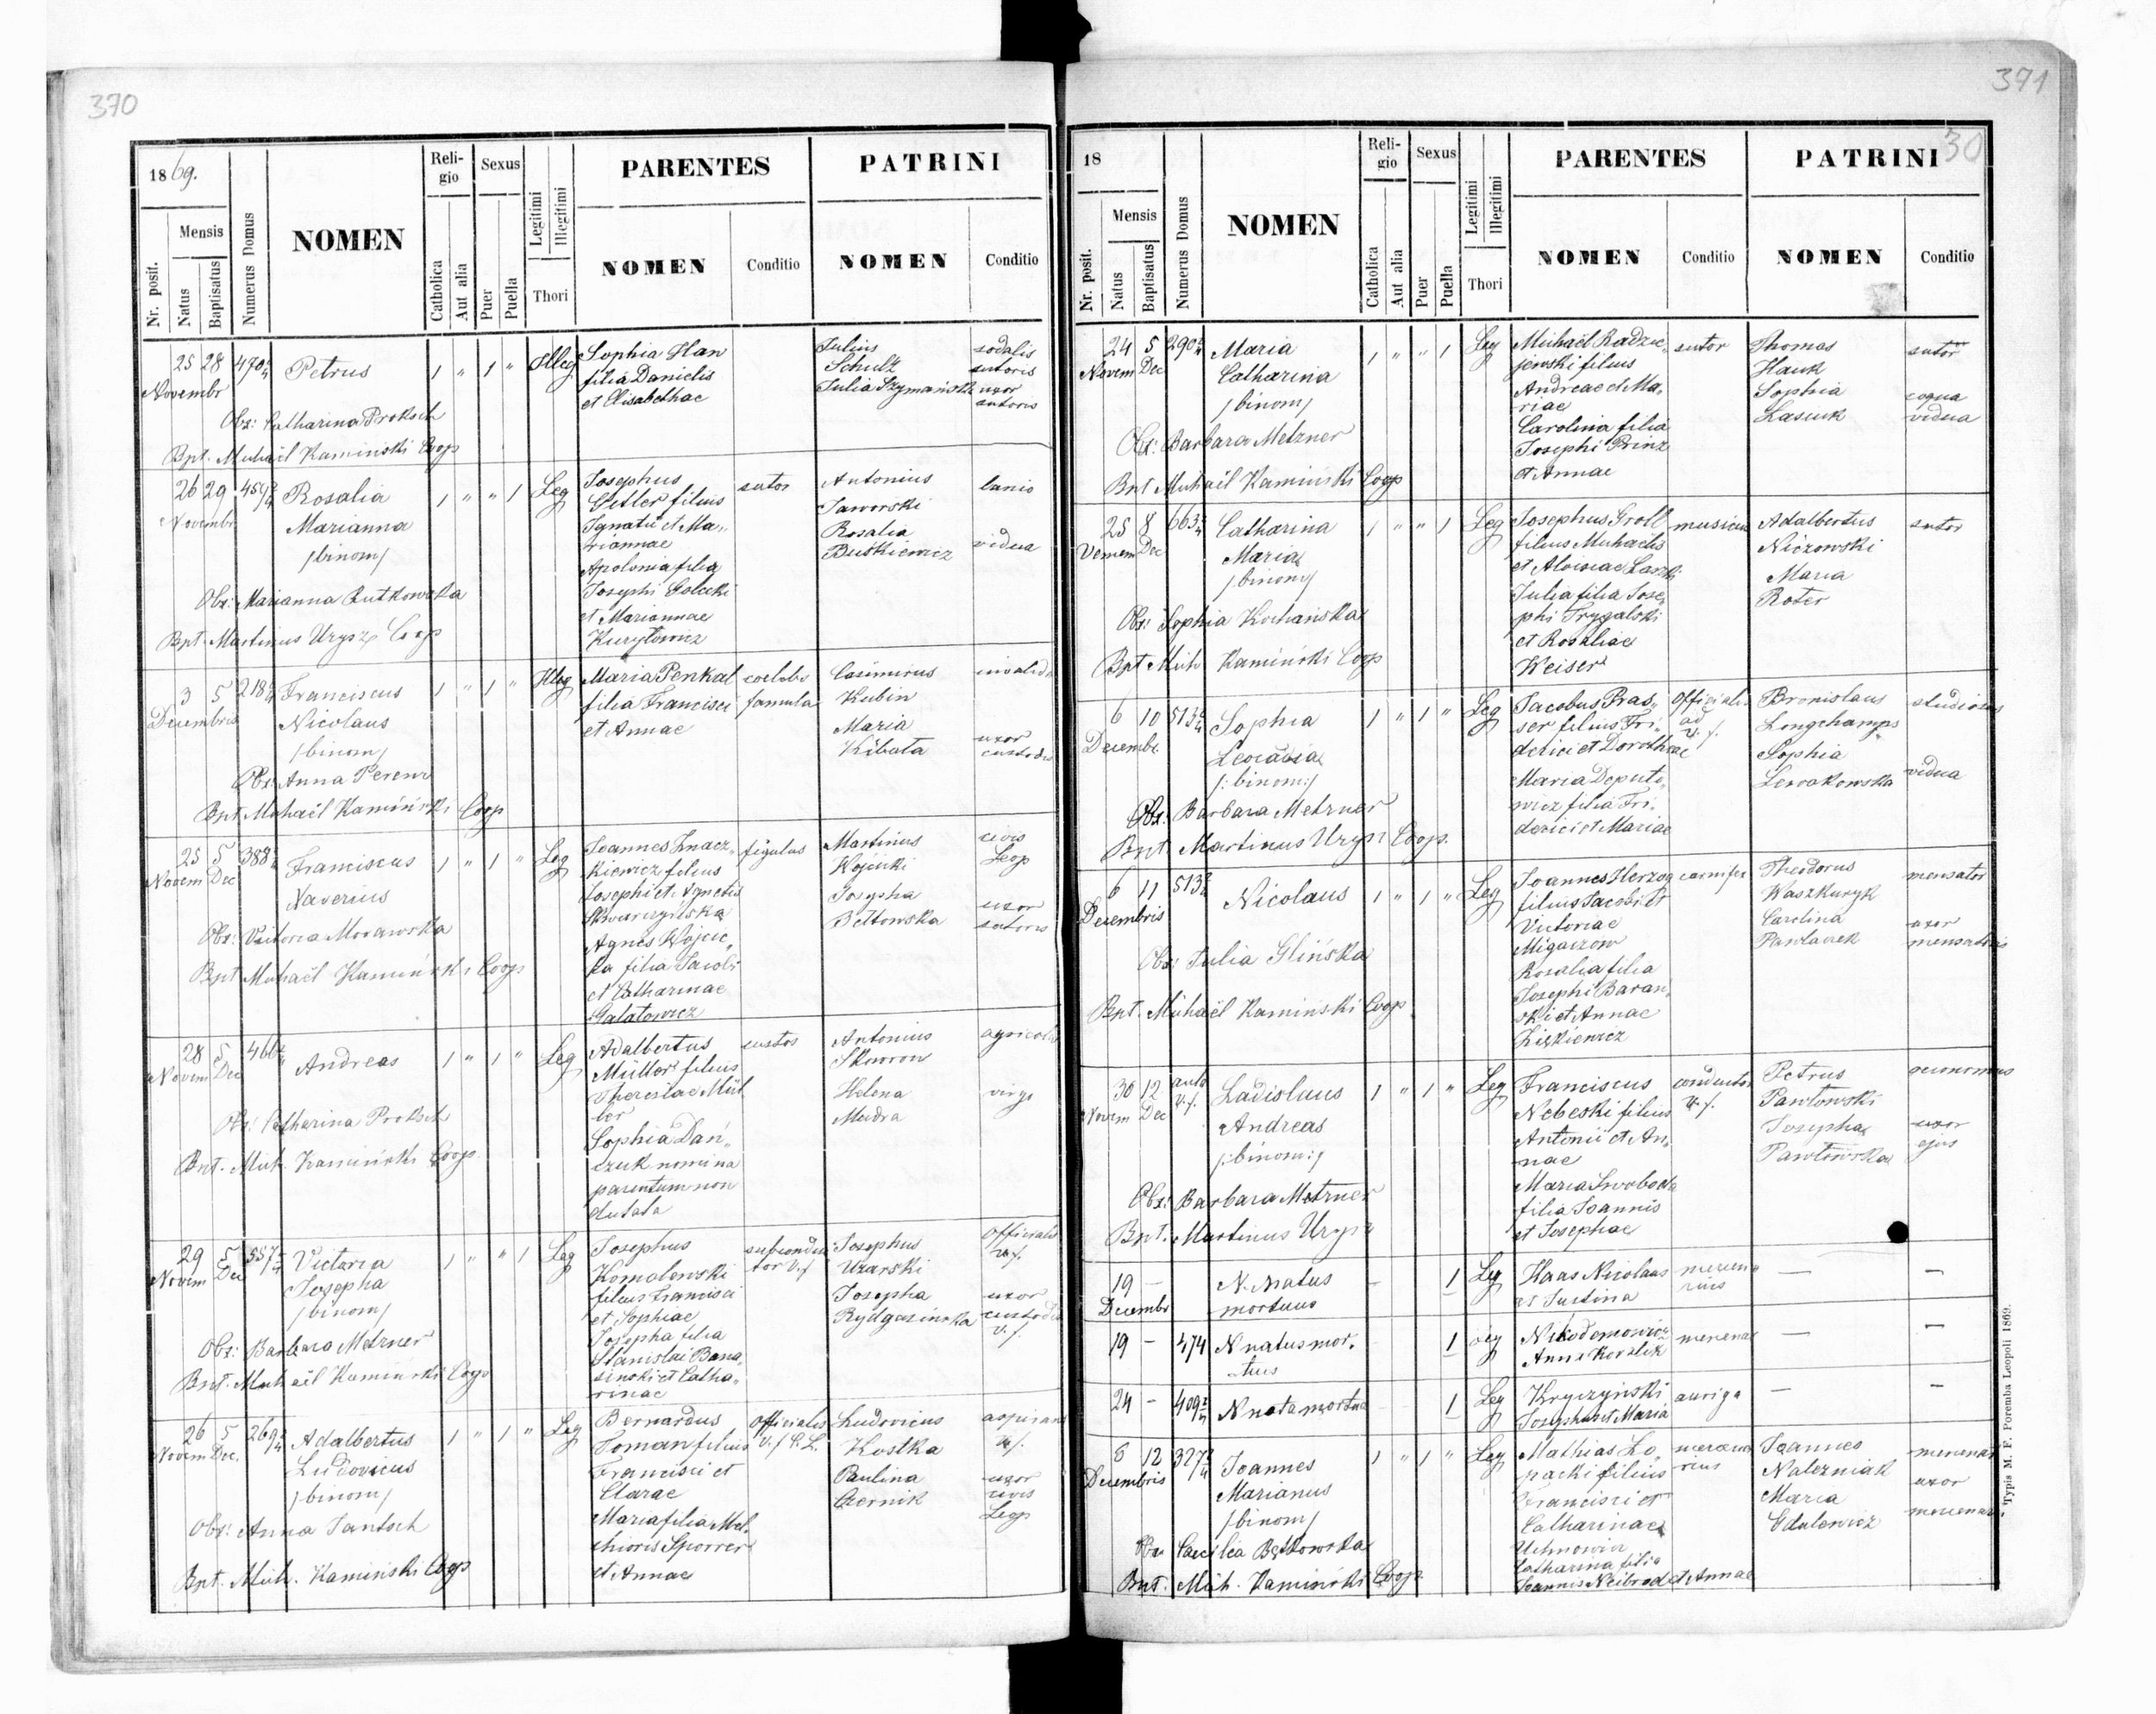 370
1869.
Nr. posit.
Mensis
Natus
Baptisatus
Numerus Domus
NOMEN
Reli-
gio
Catholica
Aut alia
Sexus
Puer
Puella
Legitimi
Illegitimi
Thori
PARENTES
NOMEN
Conditio
PATRINI
NOMEN
Conditio
25 28 Petrus 1 " 1 " Illeg
Novembr
Sophia Han
filia Danielis
et Elisabethae
Julius sodalis
Schulz sutoris
Julia Szymańska uxor
sutoris
Obs: Catharina Proksch
Bpt. Michaël Kamiński Coop
26 29 Rosalia 1 " " 1 Leg
Novembr Marianna
/binom/
Josephus sutor
Getler filius
Ignatii et Ma„
riannae
Apolonia filia
Josephi Golecki
et Mariannae
Kuryłowicz
Antonius lanio
Jaworski
Rosalia
Buśkiewicz vidua
Obs: Marianna Rutkowska
Bpt. Martinus Urysz Coop
3 5 Franciscus 1 " 1 " Illeg
Decembris Nicolaus
/binom/
Maria Penkal coelebs
filia Francisci famula
et Annae
Casimirus
Kubin
Maria uxor
Kibata custodis
Obs: Anna
Bpt. Michaël Kamiński Coop
25 5 388 Franciscus 1 " 1 " Leg
Novem Dec Xaverius
Joannes Znacz„ figulus
kiewicz filius
Josephi et Agnetis
Skwarczyńska
Agnes Wójcic„
ka filia Jacobi
et Catharinae
Galatowicz
Martinus civis
Wójcicki Leop
Josepha uxor
Bełtowska sutoris
Obs: Victoria Morawska
Bpt Michaël Kamiński Coop
28 5 Andreas 1 " 1 " Leg
Novem Dec
Adalbertus custos
Müller filius
Theresiae Mül
ler
Sophia Dań„
czuk nomina
parentum non
Antonius agricola
Skowron
Helena virgo
Obs: Catharina Proksch
Bpt. Mich. Kamiński Coop
29 5 Victoria 1 " " 1 Leg
Novem Dec Josepha
/binom/
Josephus subconduc
Komolewski tor v.f
filius Francisci
et Sophiae
Josepha filia
Stanislai Bana„
sinski et Catha„
rinae
Josephus Officialis
Uzarski v.f.
Josepha uxor
custodis
v.f.
Obs: Barbara Metzner
Bpt. Michaël Kamiński Coop
26 5 Adalbertus 1 " 1 " Leg
Novem Dec. Ludovicus
/binom/
Bernardus Officialis
Toman filius v.f C.L.
Francisci et
Clarae
Maria filia Mel„
chioris Sporrer
et Annae
Ludovicus aspirans
Kostka v.f.
Paulina uxor
Czernik civis
Leop
Obs: Anna Jantsch
Bpt. Mich. Kamiński Coop
371
30
18
Nr. posit.
Mensis
Natus
Baptisatus
Numerus Domus
NOMEN
Reli-
gio
Catholica
Aut alia
Sexus
Puer
Puella
Legitimi
Illegitimi
Thori
PARENTES
NOMEN
Conditio
PATRINI
NOMEN
Conditio
24 5 Maria 1 " " 1 Leg
Novem Dec Catharina
/binom/
Michaël Radzie„ sutor
jewski filius
Andreae et Ma„
riae
Carolina filia
Josephi Prinz
et Annae
Thomas sutor
Hauk
Sophia coqua
Lasiuk vidua
Obs: Barbara Metzner
Bpt Michaël Kamiński Coop
25 8 Catharina 1 " " 1 Leg
Maria
/binom/
Josephus Groll musicus
filius Michaelis
et Aloisiae
Julia filia Jose„
phi Trygalski
et Rosaliae
Weiser
Adalbertus sutor
Maria
Roter
Obs: Sophia Kochańska
Bpt Mich Kamiński Coop
6 10 Sophia 1 " 1 " Leg
Decembr. Leocadia
/:binom:/
Jacobus Pras„ Officialis
ser filius Fri„ ad
derici et Dorotheae v.f.
Maria Deputo„
wicz filia Fri„
derici et Mariae
Bronislaus studiosus
Longchamps
Sophia
Lewakowska vidua
Obs: Barbara Metzner
Bpt. Martinus Urysz Coop.
6 11 Nicolaus 1 " 1 " Leg
Decembris
Joannes Herzog carnifex
filius Jacobi et
Victoriae
Rosalia filia
Josephi Baran„
ski et Annae
Theodorus mensator
Waszkuryk
Carolina uxor
Pawlaczek mensatoris
Obs: Julia Glińska
Bpt. Michaël Kamiński Coop
30 12 Ladislaus 1 " 1 " Leg
Novem Dec Andreas
/:binom:/
Franciscus conductor
Nebeski filius v.f.
Antonii et An„
nae
Maria Swoboda
filia Joannis
et Josephae
Petrus oeconomus
Pawłowski
Josepha uxor
Pawłowska ejus
Obs: Barbara Metzner
Bpt. Martinus Urysz
19 — N. Natus — 1 Leg
Decembr mortuus
Haas Nicolaus
et Justina
19 — 474 N natus mor„ 1 Leg
tuus
Nikodemowicz
Anna
24 — N nata mortua 1 Leg
Kryczyński auriga
Josephus et Maria
8 12 Joannes 1 " 1 " Leg
Decembris Marianus
/binom/
Mathias Ło„ mercena
packi filius rius
Francisci et
Catharinae
Catharina filia
Joannis Neibrod et Annae
Joannes
Nalezniak
Maria uxor
Obs: Caecilia
Bpt. Mich. Kamiński Coop
Typis M. F. Poremba Leopoli 1869.